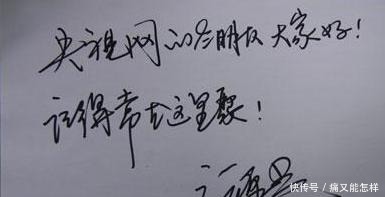 央视网的各朋友大家好！
记得常去这里聚！
快传号/痛又能怎样